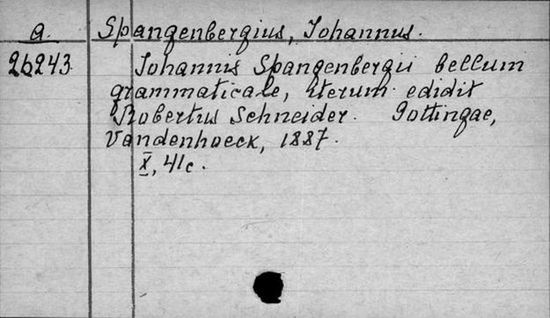 a. Spangenbergius, Johannus.
26243 Johannis Spangenbergii bellum
grammaticale, iterum edidit
Robertus Schneider. Gottingae,
Vandenhoeck, 1887.
X, 41c.